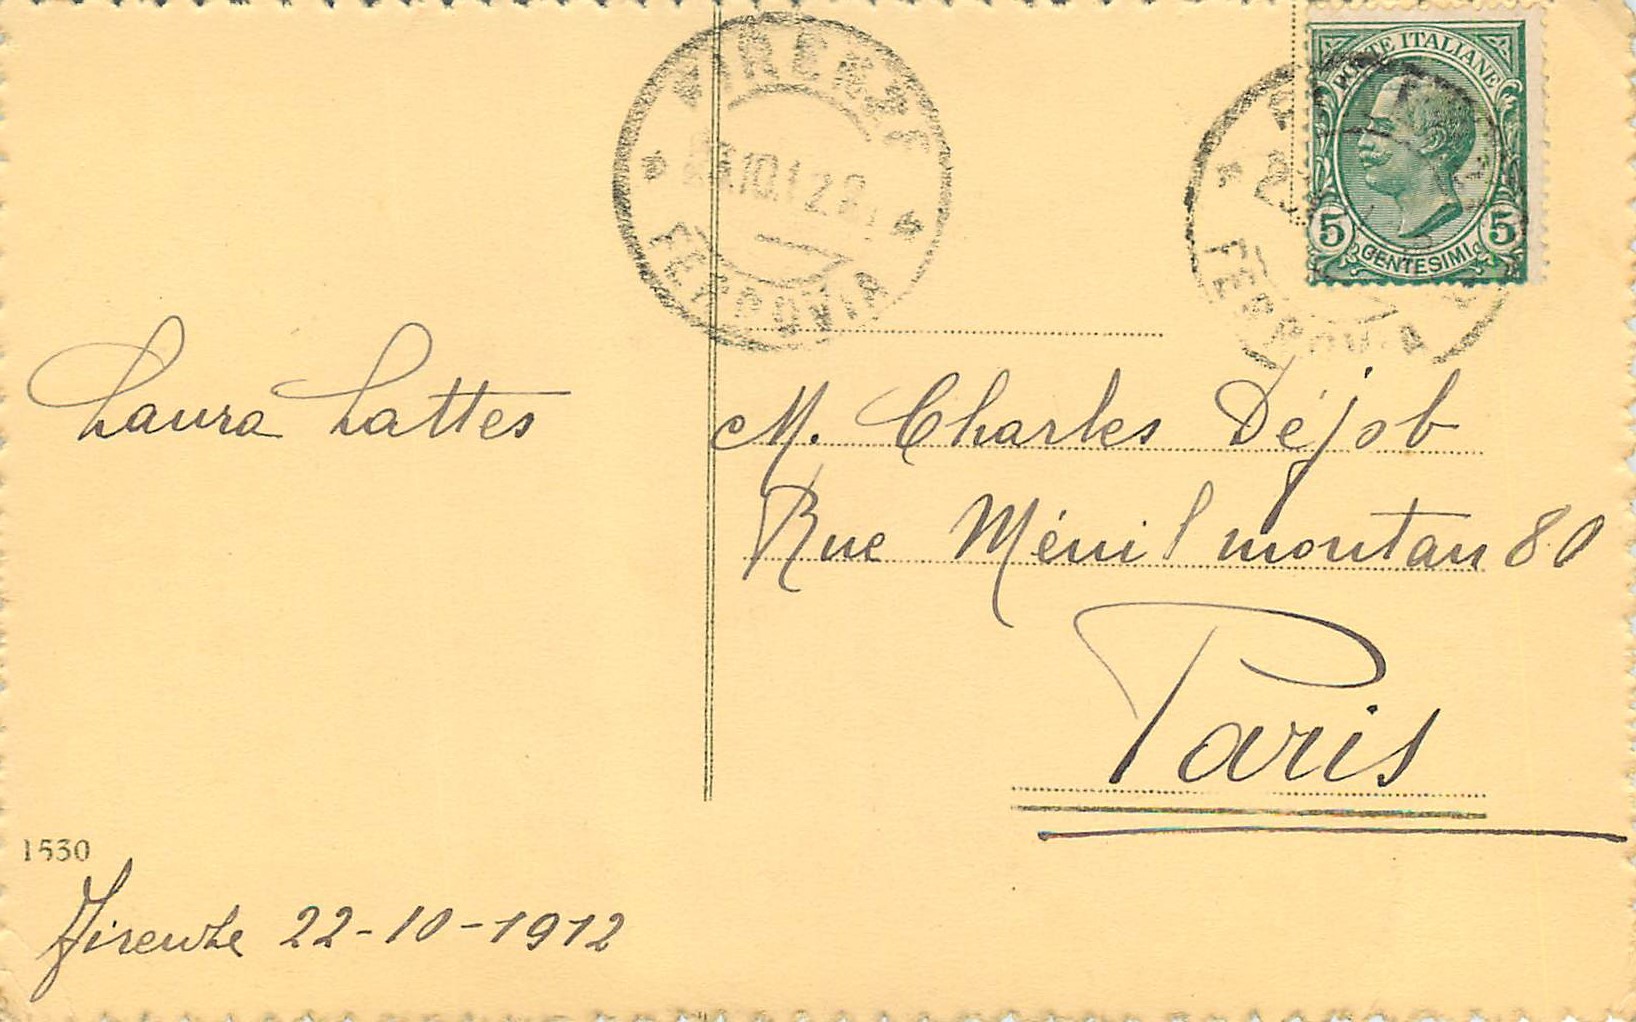 FIRENZE
10.12 8
FERROVIA
POSTE ITALIANE
5 5
CENTESIMI
FERROVIA
Laura Lattes
M. Charles Déjob
Rue Ménilmontan 80
Paris
1530
Firenze 22-10-1912